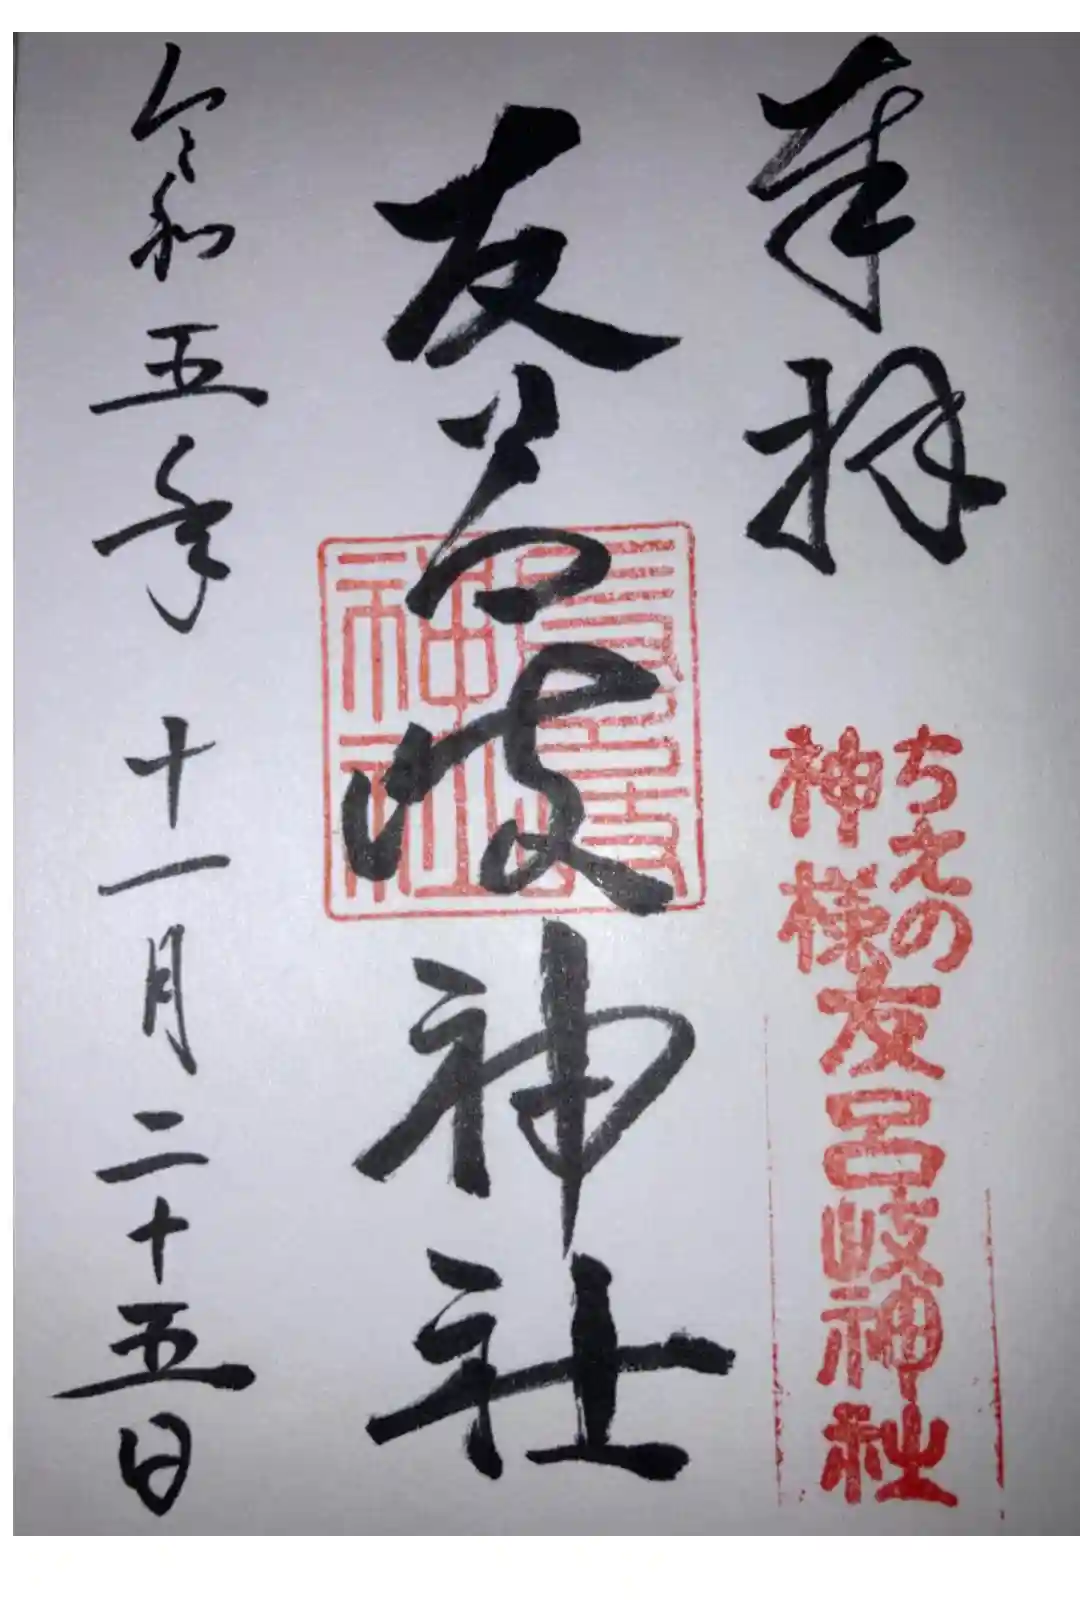 奉拝
ちえの
神様
友呂岐神社
友呂岐神社
神社
令和五年十一月二十五日